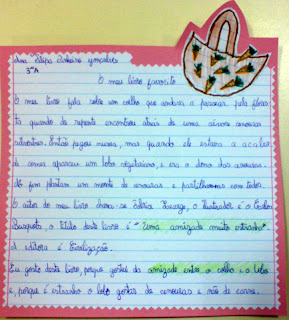 Ana Filipa Pinheiro Gonçalves
3ºA
O meu livro favorito
O meu livro fala sobre um coelho que andava a passear pela flores
ta quando de repente encontrou atrás de uma árvore cenouras
Então pegou nessas, mas quando ele estava a acabar
de comer apareceu um lobo vegetariano, e era o dono das cenouras.
No fim plantam um monte de cenouras e partilharam com todos.
O autor do meu livro chama-se Fabrice, o ilustrador é o
o título deste livro é "Uma amizade muito estranha".
A editora é Civilização.
Eu gostei deste livro, porque gostei da amizade entre o coelho e o lobo
e, porque é estranho o lobo gostar de cenouras e não de carne.